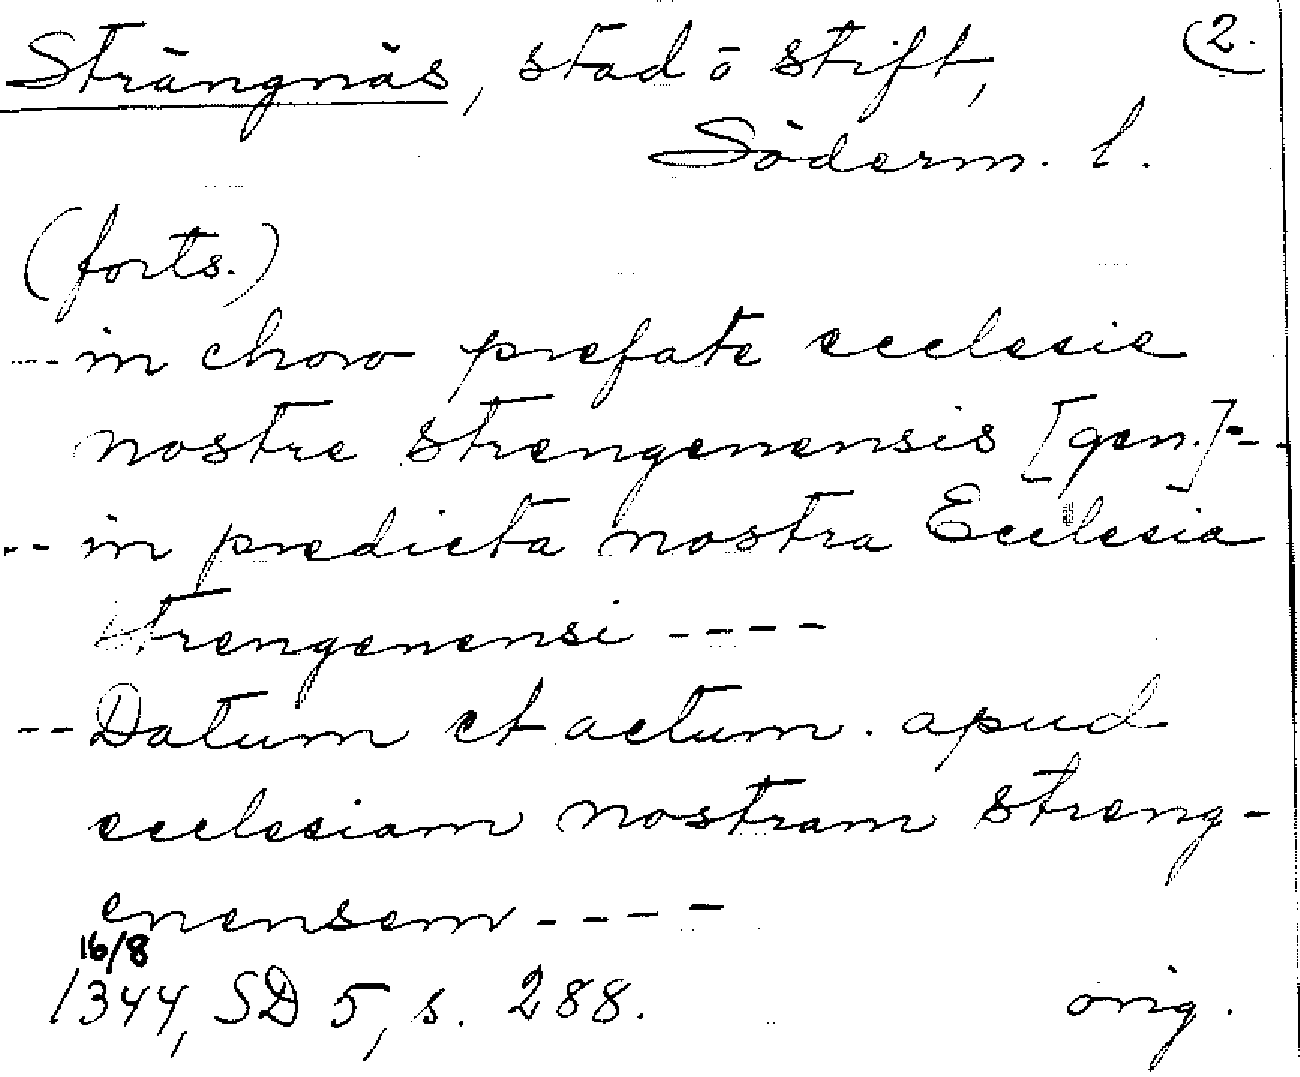 Strängnäs, stad o stift, (2.
Söderm. l.
(forts.)
--- in choro prefate ecclesie
nostre strengenensis [gen.]---
--- in predicta nostra Ecclesia
strengenensi ----
-- Datum et actum. apud
ecclesiam nostram streng-
enensem ----
16/8
1344, SD 5, s. 288. orig.